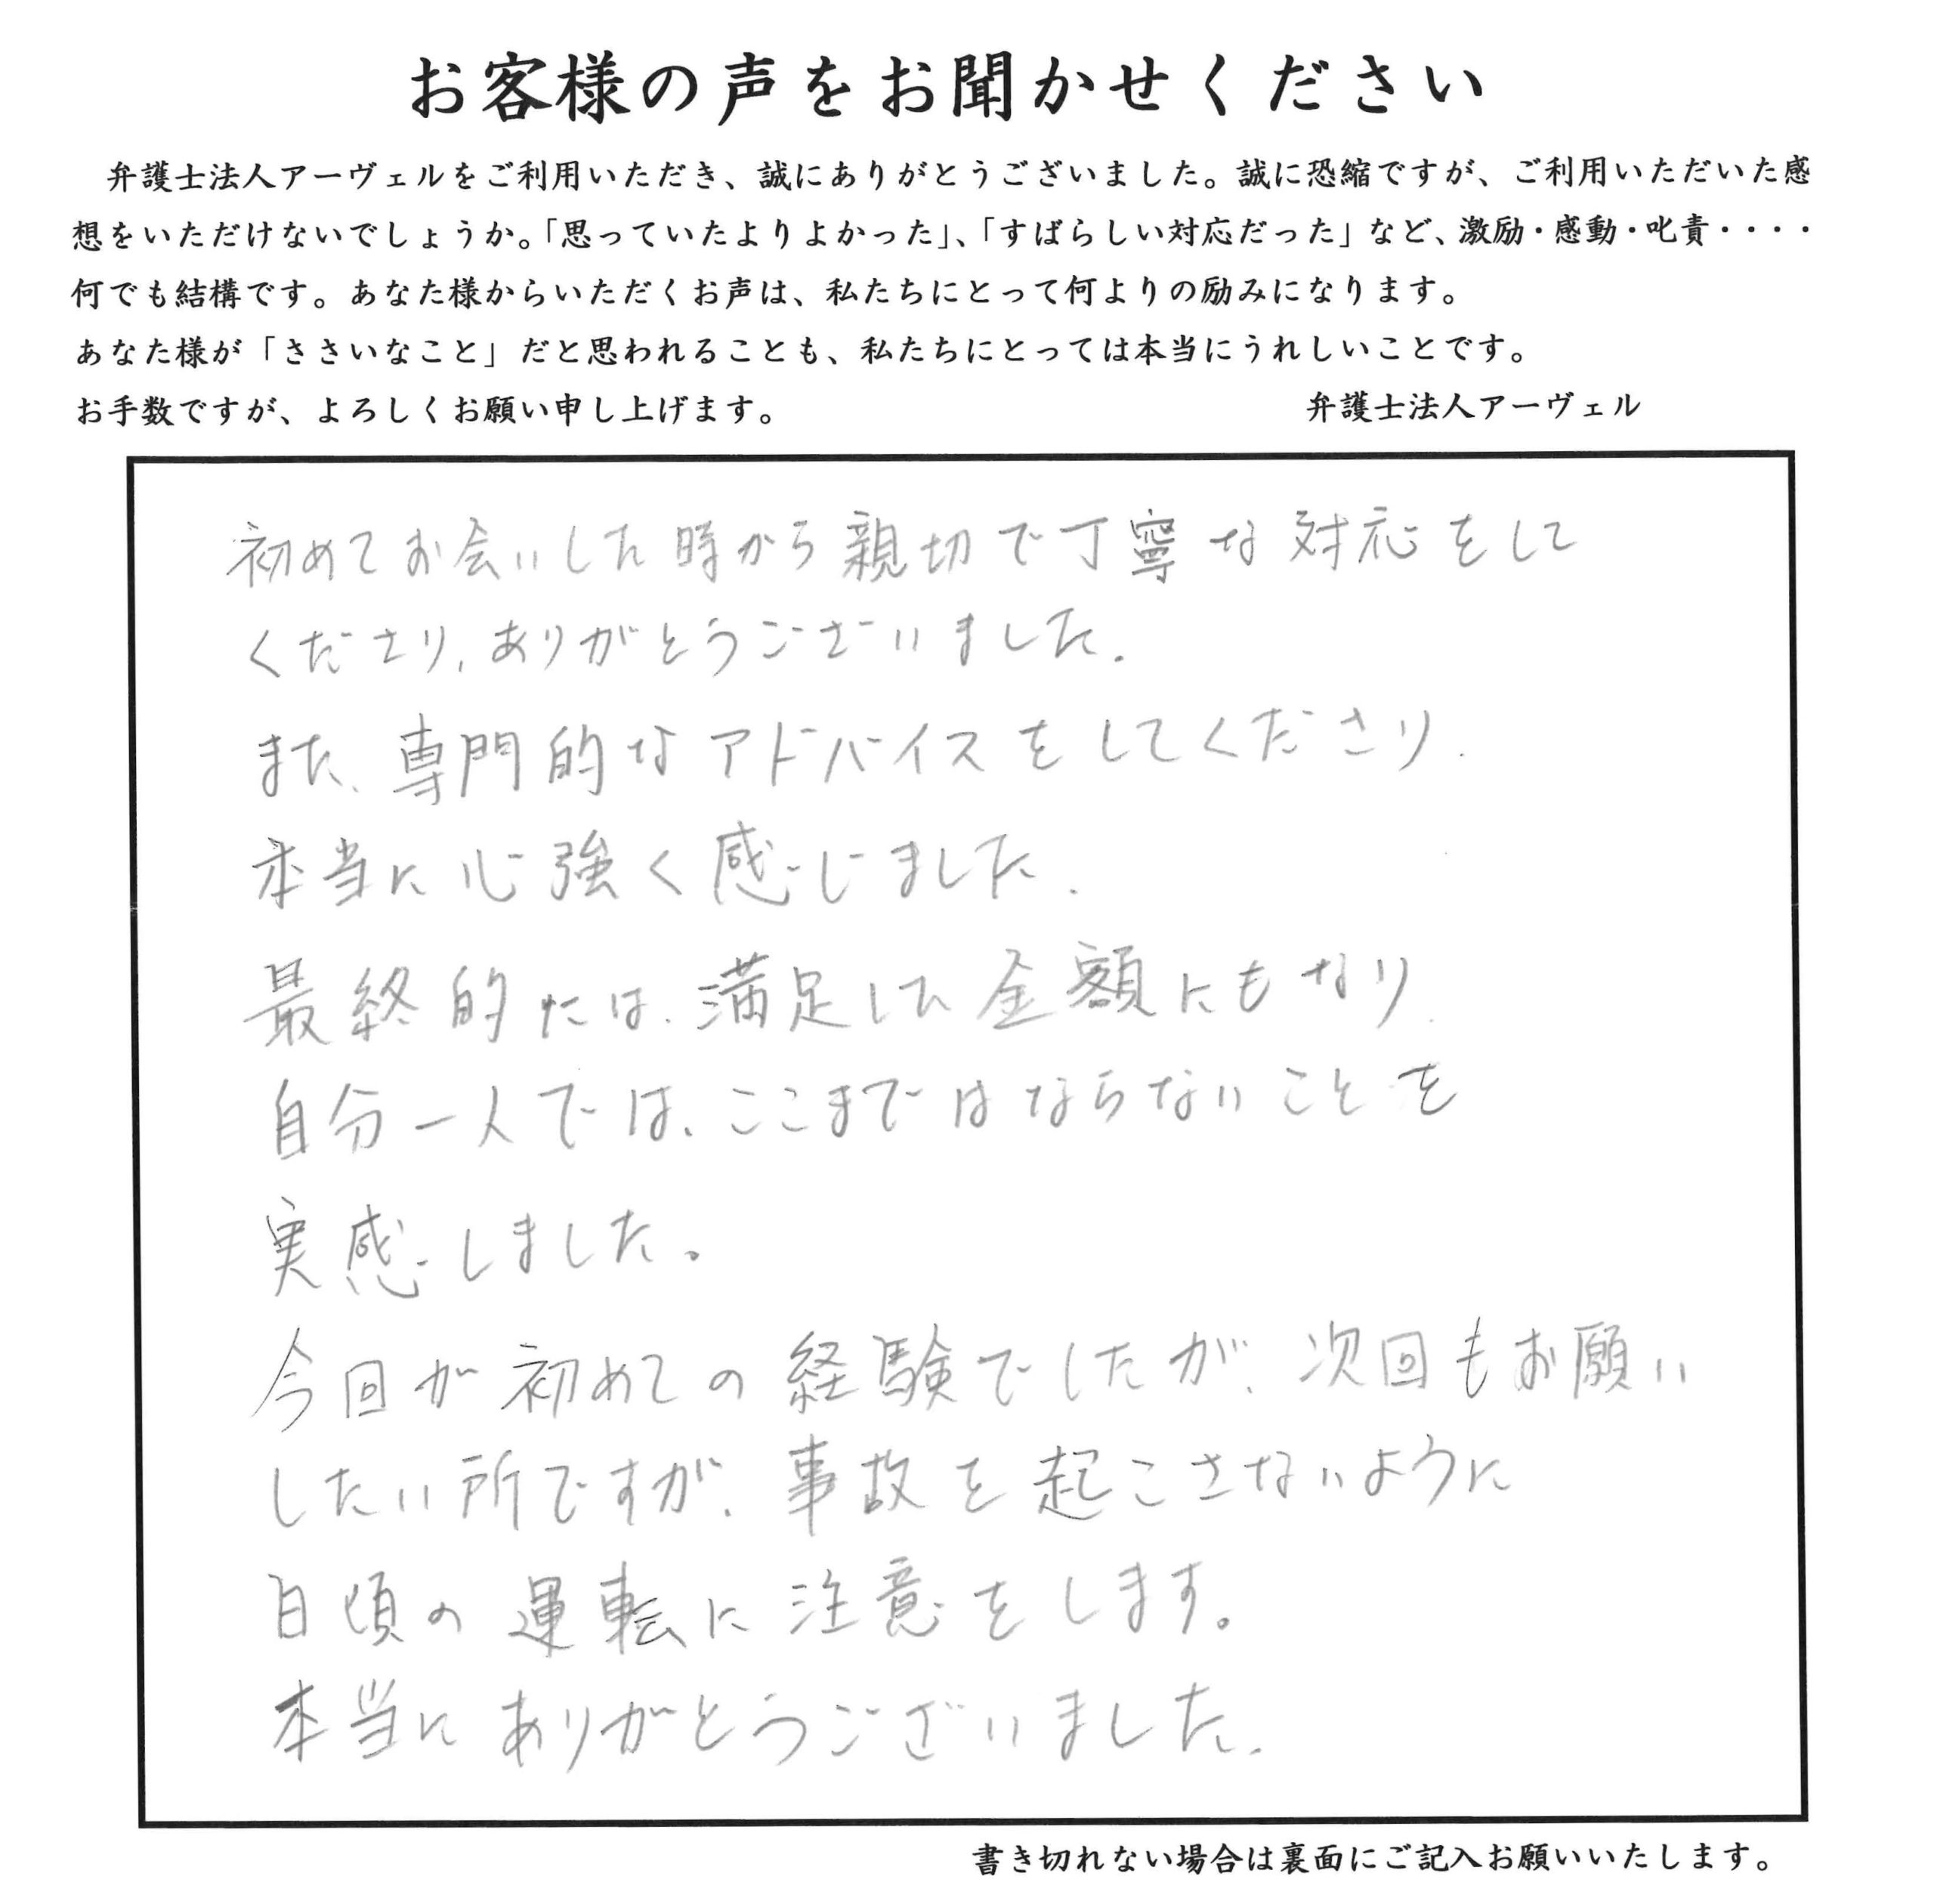 お客様の声をお聞かせください
弁護士法人アーヴェルをご利用いただき、誠にありがとうございました。誠に恐縮ですが、ご利用いただいた感
想をいただけないでしょうか。「思っていたよりよかった」、「すばらしい対応だった」など、激励・感動・叱責・・・・
何でも結構です。あなた様からいただくお声は、私たちにとって何よりの励みになります。
あなた様が「ささいなこと」だと思われることも、私たちにとっては本当にうれしいことです。
お手数ですが、よろしくお願い申し上げます。 弁護士法人アーヴェル
初めてお会いした時から親切で丁寧な対応をして
くださり、ありがとうございました。
また、専門的なアドバイスをしてくださり、
本当に心強く感じました。
最終的には、満足した金額にもなり、
自分一人では、ここまではならないことを
実感しました。
今回が初めての経験でしたが、次回もお願い
したい所ですが、事故を起こさないように
日頃の運転に注意をします。
本当にありがとうございました。
書き切れない場合は裏面にご記入お願いいたします。